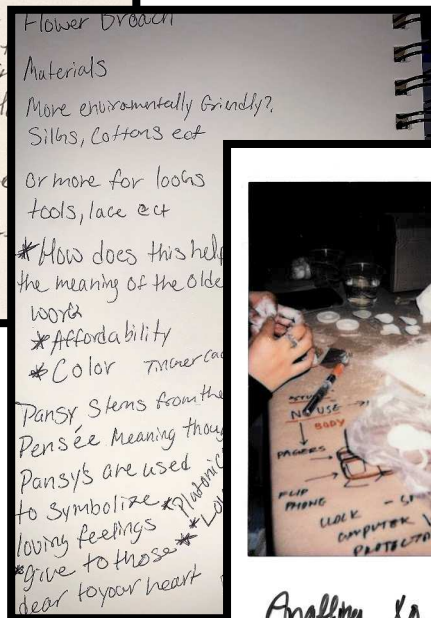 Flower Broach
Materials
More enviramentally Griendly?,
Silks, Cottons ect
or more for looks
tools, lace ect
* How does this help
the meaning of the olde
work
* Affordability
* Color
Pansy Stems from the
Pensée Meaning thoug
Pansy's are used
to Symbolize * Platonic
loving feelings *
* give to those *
dear to your heart
NO USE
BODY
PAGERS
FLIP
PHONE
CLOCK
COMPUTER
Another